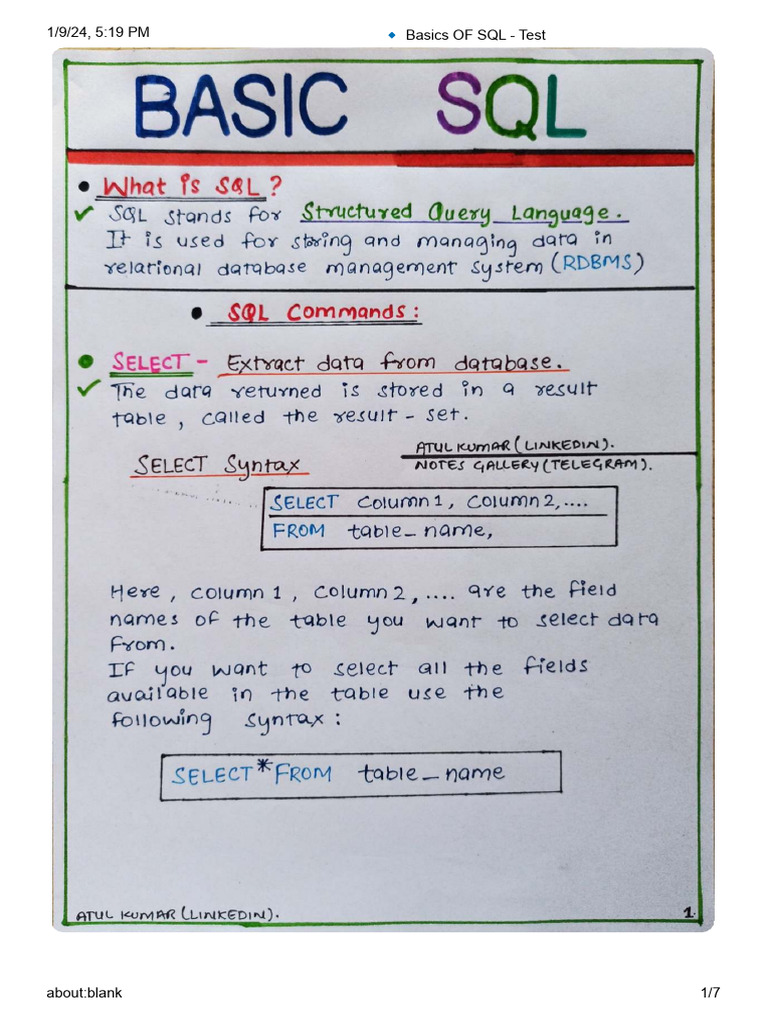 1/9/24, 5:19 PM
Basics OF SQL - Test
BASIC SQL
What is SQL?
SQL stands for Structured Query Language.
It is used for storing and managing data in
relational database management system (RDBMS)
SQL Commands:
SELECT - Extract data from database.
The data returned is stored in a result
table, called the result-set.
ATUL KUMAR (LINKEDIN).
SELECT Syntax
NOTES GALLERY (TELEGRAM).
SELECT Column1, Column2,....
FROM table_name,
Here, column1, Column2, .... are the field
names of the table you want to select data
from.
If you want to select all the fields
available in the table use the
following syntax:
SELECT * FROM table_name
ATUL KUMAR (LINKEDIN).
1.
about:blank
1/7